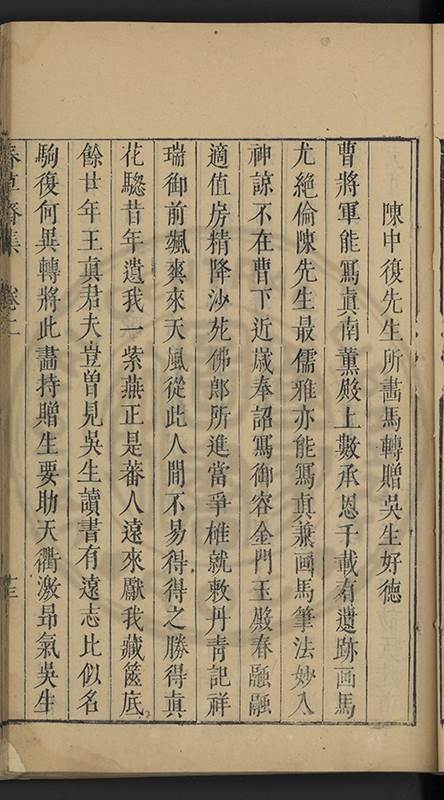 陳中復先生所畵馬轉贈吳生好德
曹將軍能冩真南薰殿上數承恩千載有遺跡画馬
尤絶倫陳先生最儒雅亦能冩真兼画馬筆法妙入
神諒不在曹下近歳奉詔冩御容金門玉殿春融融
適值房精降沙苑佛郎所進當爭權就敕丹青記祥
瑞御前颯爽來天風從此人間不易得得之勝得真
花騘昔年遺我一紫燕正是蕃人遠來獻我藏篋底
餘廿年王真君夫豈曽見吳生讀書有遠志比似名
駒復何異轉將此畵持贈生要助天衢激昻氣吳生
春草齋集 卷二 十三